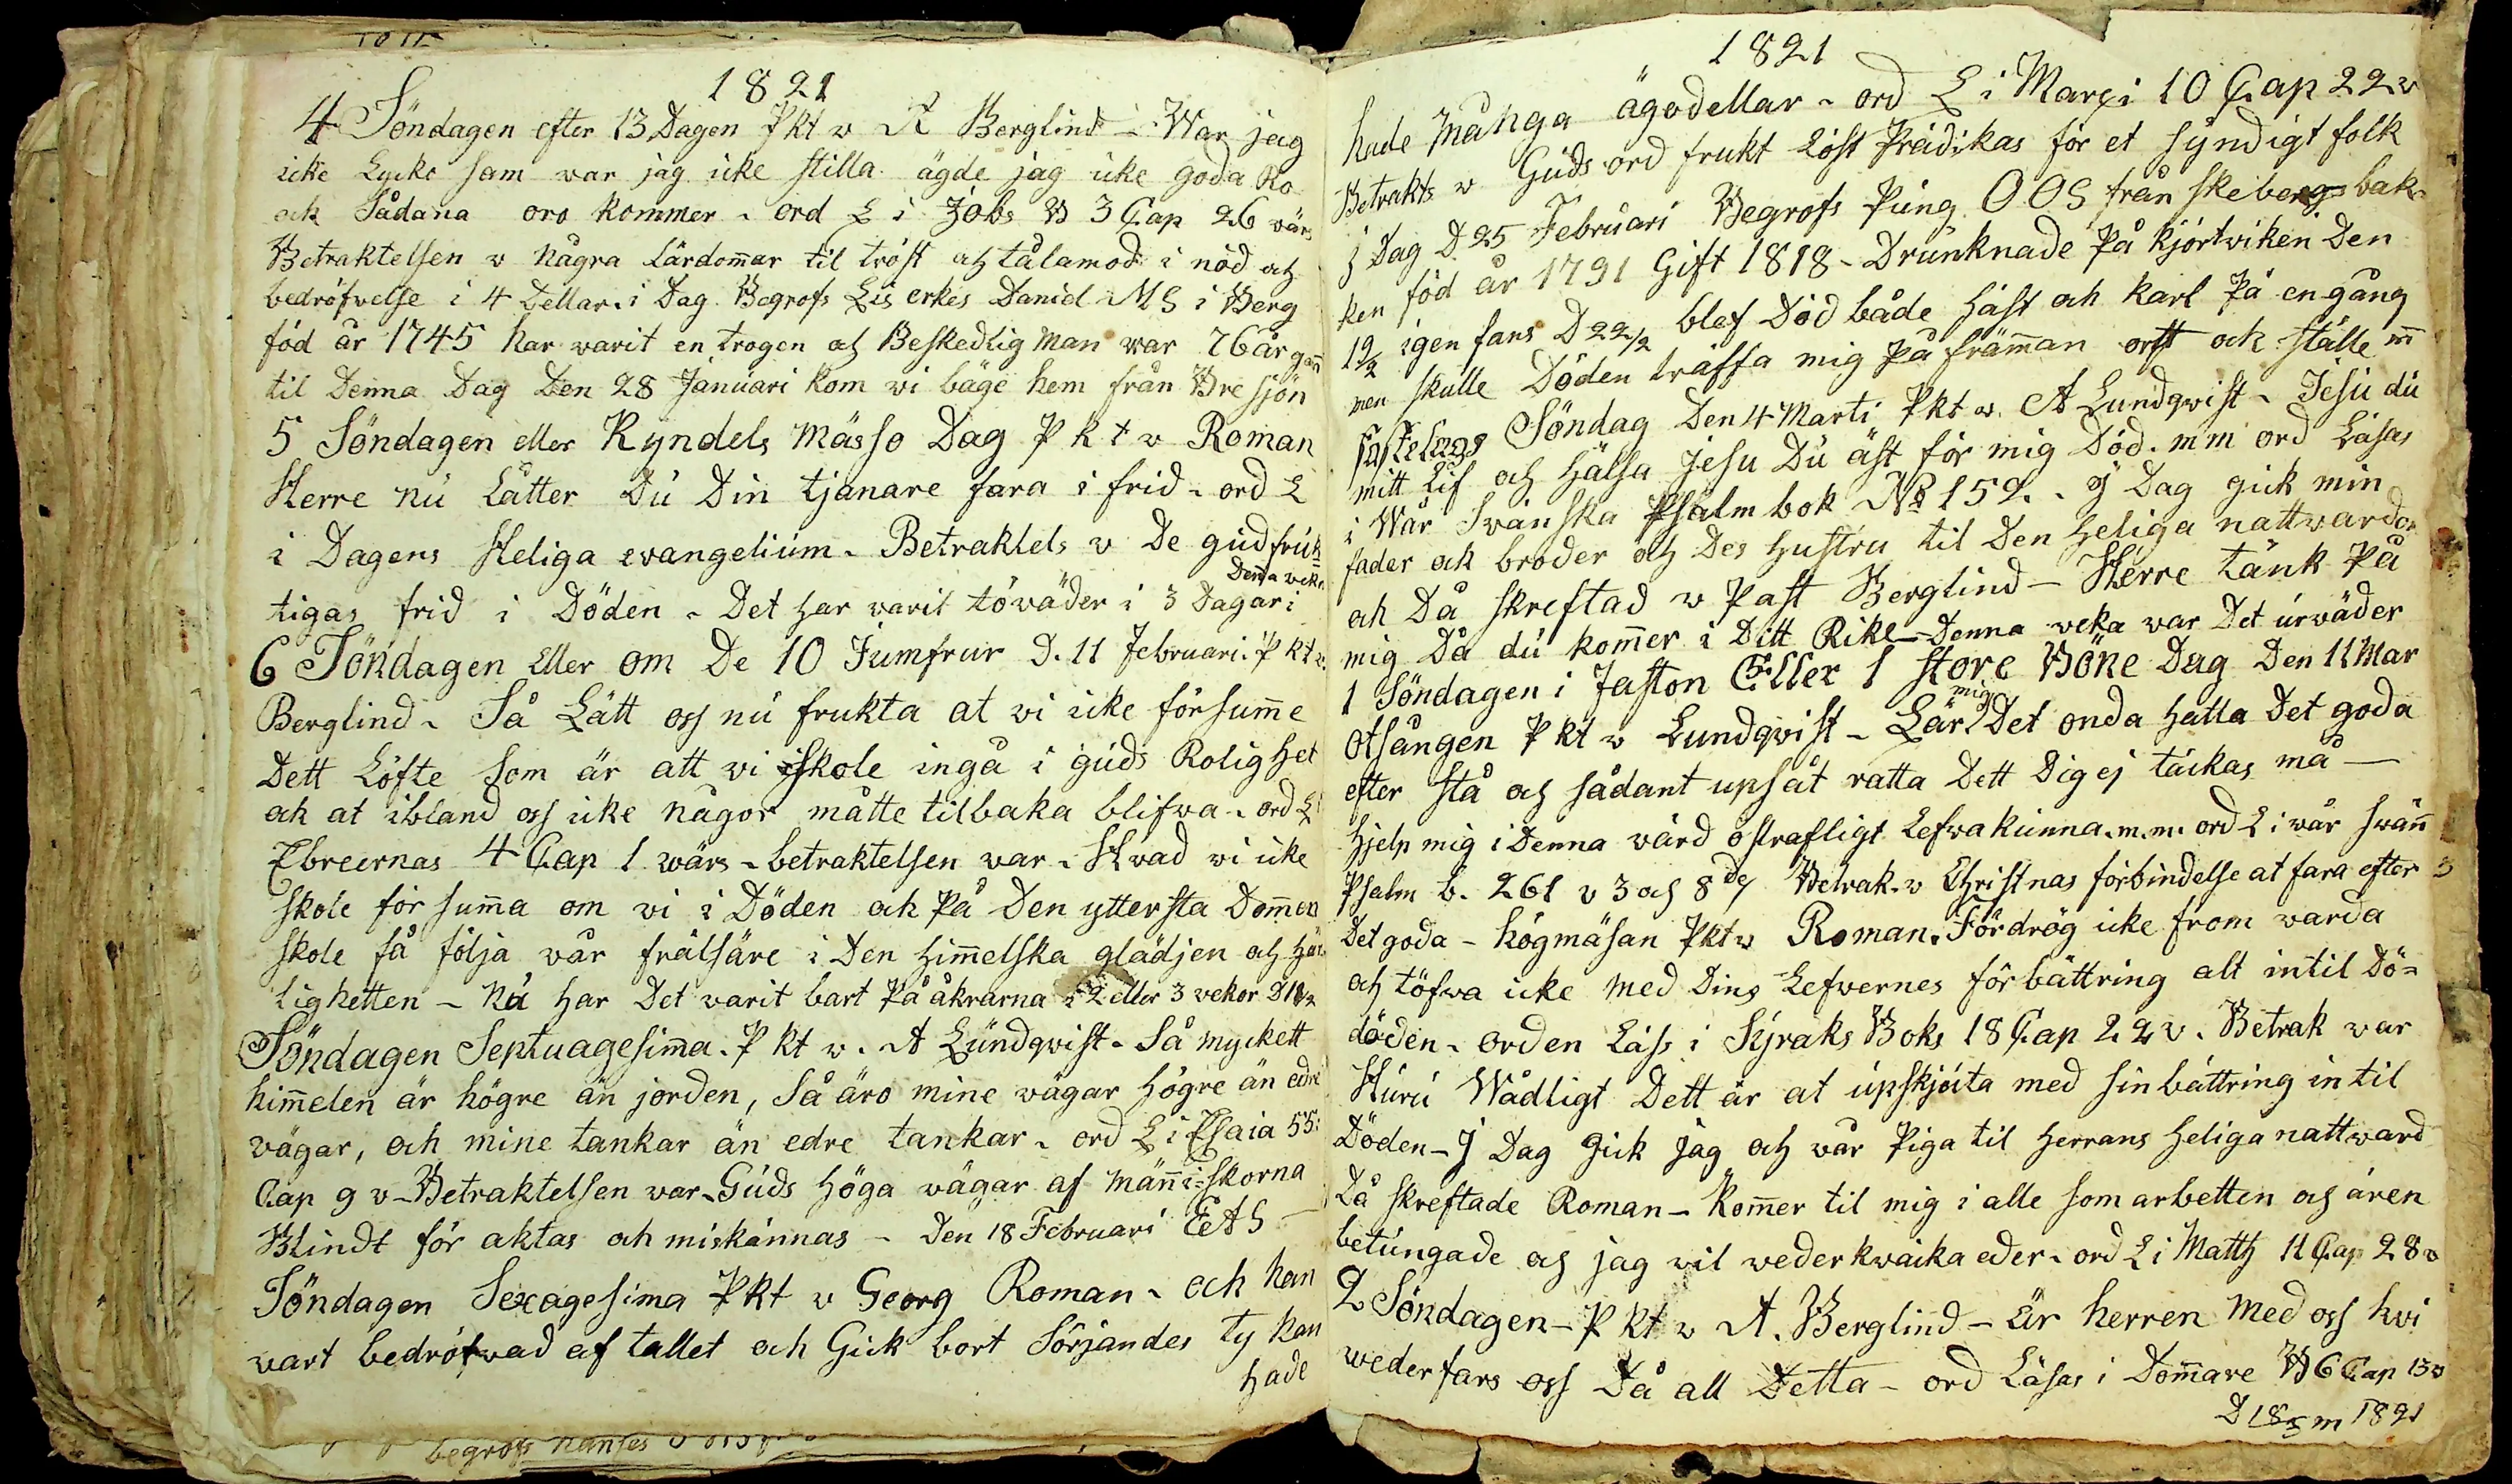 1821
4 Söndagen efter 13 Dagen Pkt v A Berglind - War jag
icke Lycko sam war jag icke stilla ägde jag icke goda Ro
ok Sådana oro kommer - ord L i Jobs B 3 Cap 26 värs
Betraktelsen v några Lärdomar til tröst och tålamod i nöd och
bedröfvelse i 4 Dellar. i Dag Begrofs Lis erkes Daniel MS i Berg
föd år 1745 har varit en trogen och Beskedlig man war 76 år gam
til Denna Dag Den 28 Januari kom vi bäge hem från Bre sjön
5 Söndagen eller Kyndels mässo Dag P k t v Roman
Herre nu Låtter Du Din tjanare fara i frid - ord L
i Dagens Heliga evangelium - Betraktels v De gudfruk
tigas frid i Döden - Det har varit töväder i 3 Dagar i Denna veka
6 Söndagen Eller om De 10 Jumfrur D. 11 Februari. P kt v.
Berglind - Så Lätt oss nu frukta at vi icke försumme
Dett Löfte som är att vi skole ingå i guds Rolighet
ok at ibland oss icke någor måtte tilbaka blifwa - ord L
Ebreernas 4 Cap 1 wärs - betraktelsen war - Hvad vi icke
skole för summa om vi i Döden ok På Den yttersta Domen
skole få följa vår frälsäre i Den himmelska glädjen och här
ligheten - Nu har Det varit bart På åkrarna i 2 eller 3 vekor D 18/2
Söndagen Septuagesima. P kt v. A Lundqvist - Så myckett
himmelen är högre än jorden, Så äro mine vägar högre än edre
vägar, och mine tankar än edre tankar - ord L i Esaia 55:
Cap 9 v - Betraktelsen war - Guds Höga vägar af männi-skorna
Blindt för aktas och miskännas - Den 18 Februari EAS -
Söndagen Sexagesima Pkt v Georg Roman - och han
vart bedröfvad af tallet och Gick bort Sörjandes ty han
hade
1821
hade många ägodellar - ord L i Marci 10 Cap 22 v
Betrakts v Guds ord frukt Löst Prädikas för et syndigt folk
j Dag D 25 Februari Begrofs Pung OOS från skebergs bak
ken föd år 1791 Gift 1818 - Drunknade På kjörtviken Den
19/2 igen fans D 22/2 blef Död både häst ok karl På en gång
men skulle Döden träffa mig på främman ortt ok ställe m
fastelags Söndag Den 4 Marti Pkt v. A Lundqvist - Jesu du
mitt Lif och Hälsa Jesu Du äst för mig Död. m m ord Läsas
i Wår Swänska Psalm bok No 152. - J Dag gick min
fader ok broder och Des Hustru til Den Heliga nattvarden
ok Då skreftad v Past Berglind - Herre tänk På
mig Då du kommer i Ditt Rike - Denna veka war Det urväder
1 Söndagen i faston Eller 1 store Böne Dag Den 11 Mar
Otsången P kt v Lundqvist - Lär mig Det onda Hatta Det goda
efter stå och sådant upsåt ratta Dett Dig ej täckas må -
Hjelp mig i Denna värd ostrafligt Lefva kunna. m.m. ord L i vår svän
Psalm b. 261 v 3 och 8de Betrak. v Christnas förbindelse at fara efter
Det goda - Högmäsan Pkt v Roman. Fördrög icke from varda
och töfva icke med Dins Lefwernes förbättring alt intil Dö=
döden - orden Läss i Syraks Boks 18 Cap 22 v. Betrak war
Huru Wådligt Dett är at upskjuta med sin bättring in til
Döden - J Dag gick jag och vår Piga til Herrans Heliga nattvard
Då skreftade Roman - Kommer til mig i alle som arbetten och ären
betungade och jag vil vederkväcka eder - ord L i Matth 11 Cap 28 v
2 Söndagen - P kt v A. Berglind - Är herren med oss hvi
weder fars oss Då all Detta - ord Läsas i Dommare B 6 Cap 13 v
D 18/3 m 1821
begrofs hanses